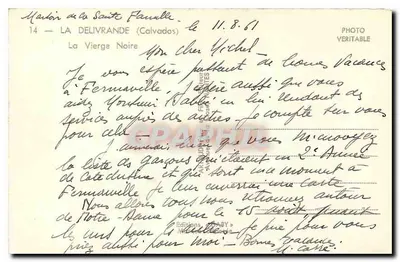 Manoir de la Sainte Famille
14 — LA DELIVRANDE (Calvados)
La Vierge Noire
le 11.8.61
PHOTO
VERITABLE
Mon cher Michel
Je vous espère passant de bonnes Vacances
à Fermanville. J'espère aussi que vous
aidez Monsieur l'Abbé en lui rendant des
services auprès des autres. Je compte sur vous
pour cela
J'aimerais bien que vous m'envoyez
la liste des garçons qui étaient en 2e Année
de catéchisme et qui sont en ce moment à
Fermanville. Je leur enverrai une carte
Nous allons tous nous retrouver autour
de Notre-Dame pour le 15 août, priant
les uns pour les autres. Je prie pour vous
priez aussi pour moi — Bonnes vacances